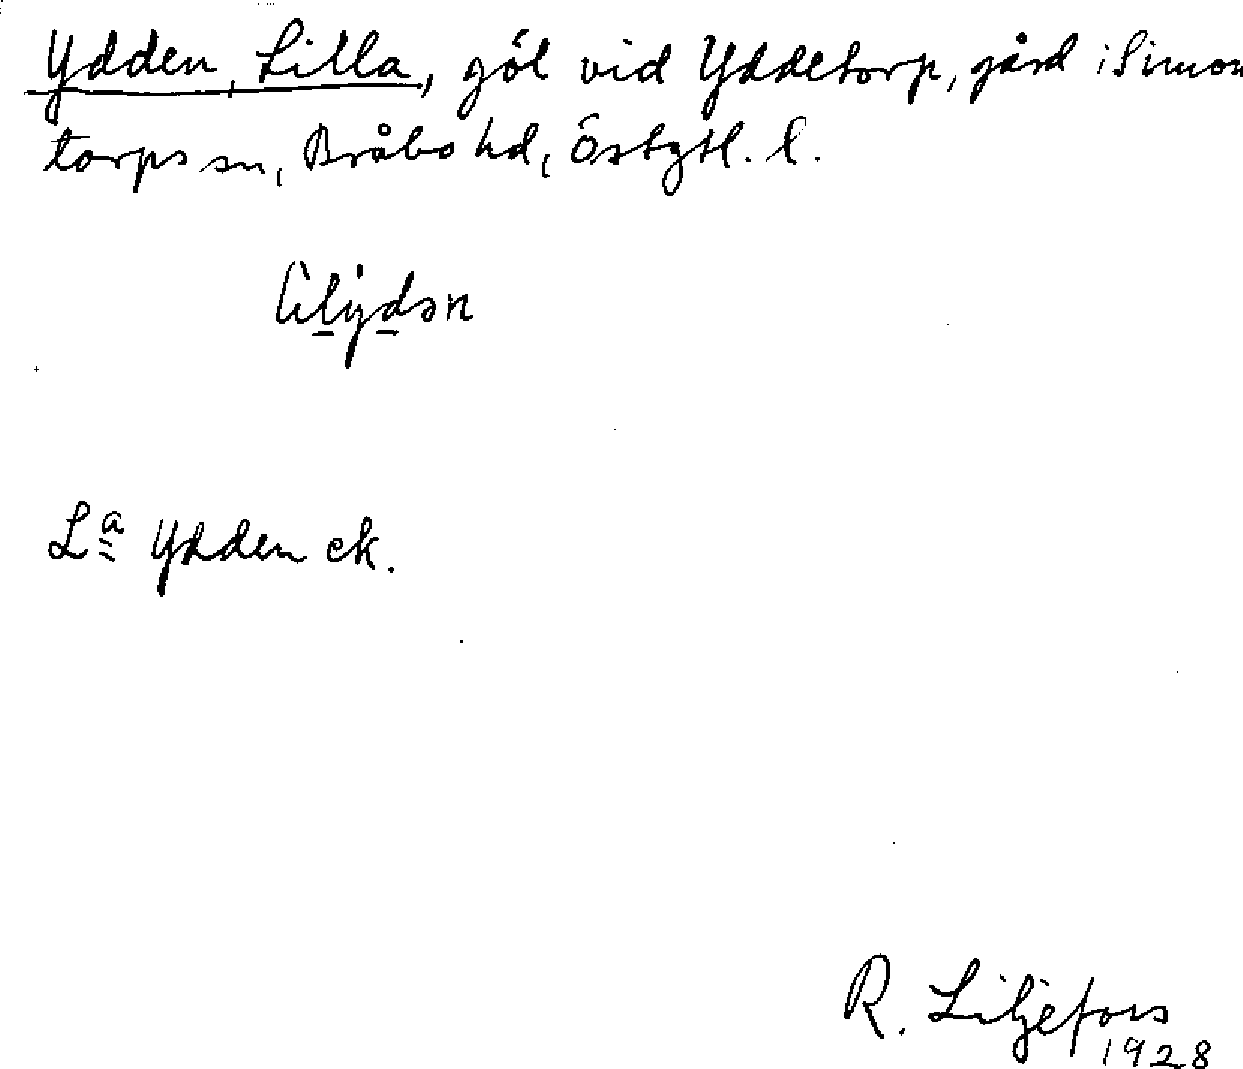 Ydden, Lilla, göl vid Yddetorp, gård i Simon
torps sn, Bråbo hd, Östgtl. l.
lìlýdən
La Ydden ek.
R. Liljefors
1928